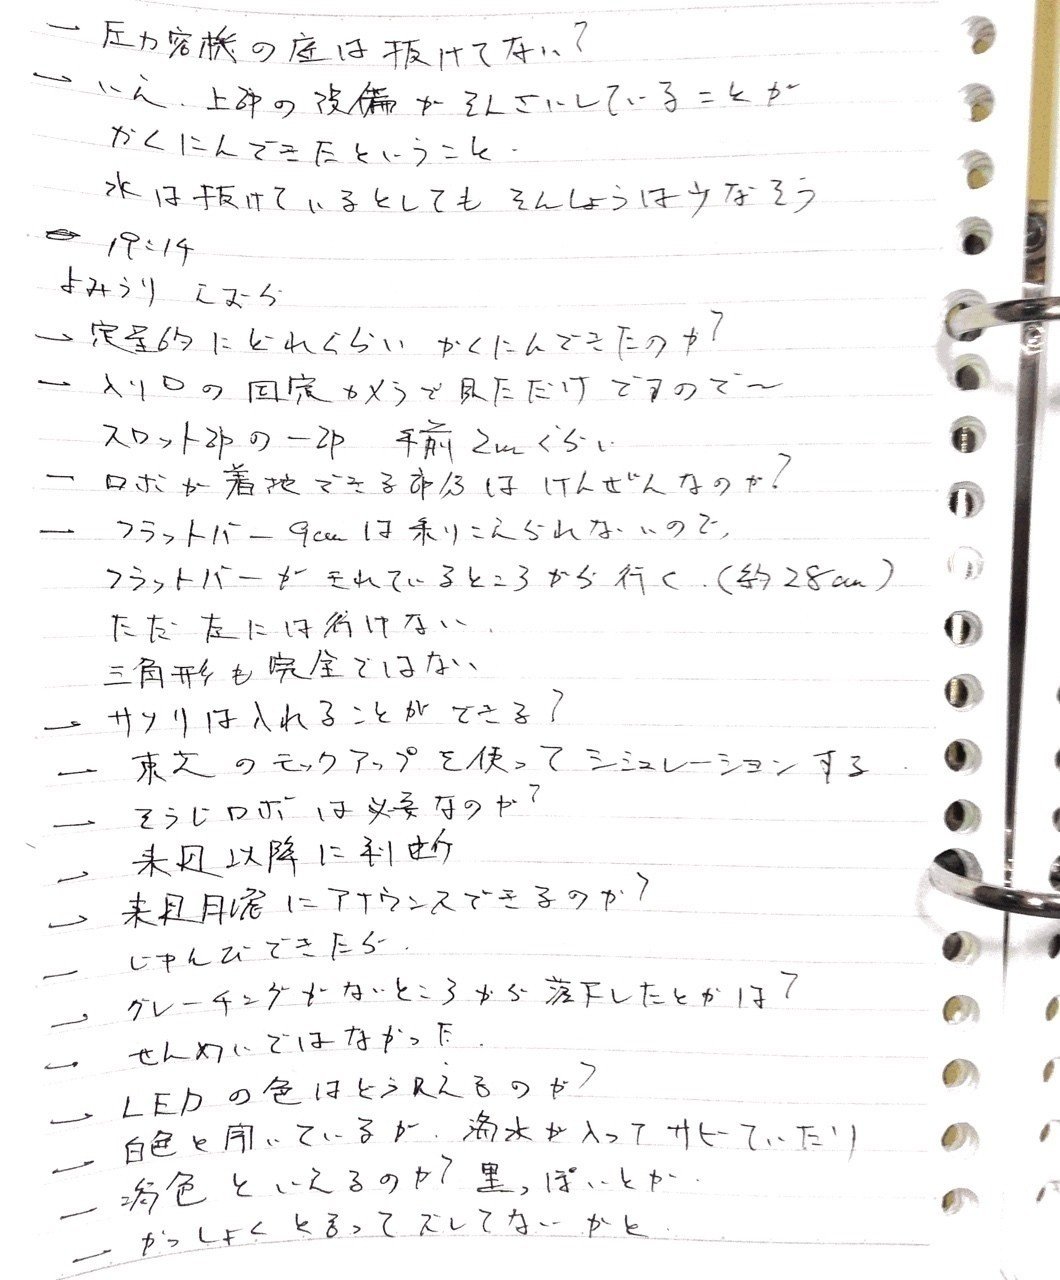 ー 圧力容機の底は抜けてない?
ー いえ、上部の設備がそんざいしていることが
かくにんできたということ.
水は抜けているとしてもそんしょうは少なそう
19:14
よみうり
→ 定量的にどれくらいかくにんできたのか?
ー 入り口の固定カメラで見ただけですので〜
スロット部の一部 手前2mくらい
ー ロボが着地できる部分はけんぜんなのか?
ー フラットバー9cmは乗りこえられないので、
フラットバーがそれているところから行く.(約28cm)
ただ左には行けない.
三角形も完全ではない
→ サソリは入れることができる?
ー 東芝のモックアップを使ってシミュレーションする.
→ そうじロボは必要なのか?
→ 来週以降に判断
→ 来週月曜にアナウンスできるのか?
ー じゅんびできたら.
→ グレーチングがないところから落下したとかは?
→ せんめいではなかった.
→ LEDの色はどう見えるのか?
→ 白色と聞いているが、滴水が入ってサビていたり
ー 褐色といえるのか?黒っぽいとか.
ー かっしょくと言ってズレてないかと.